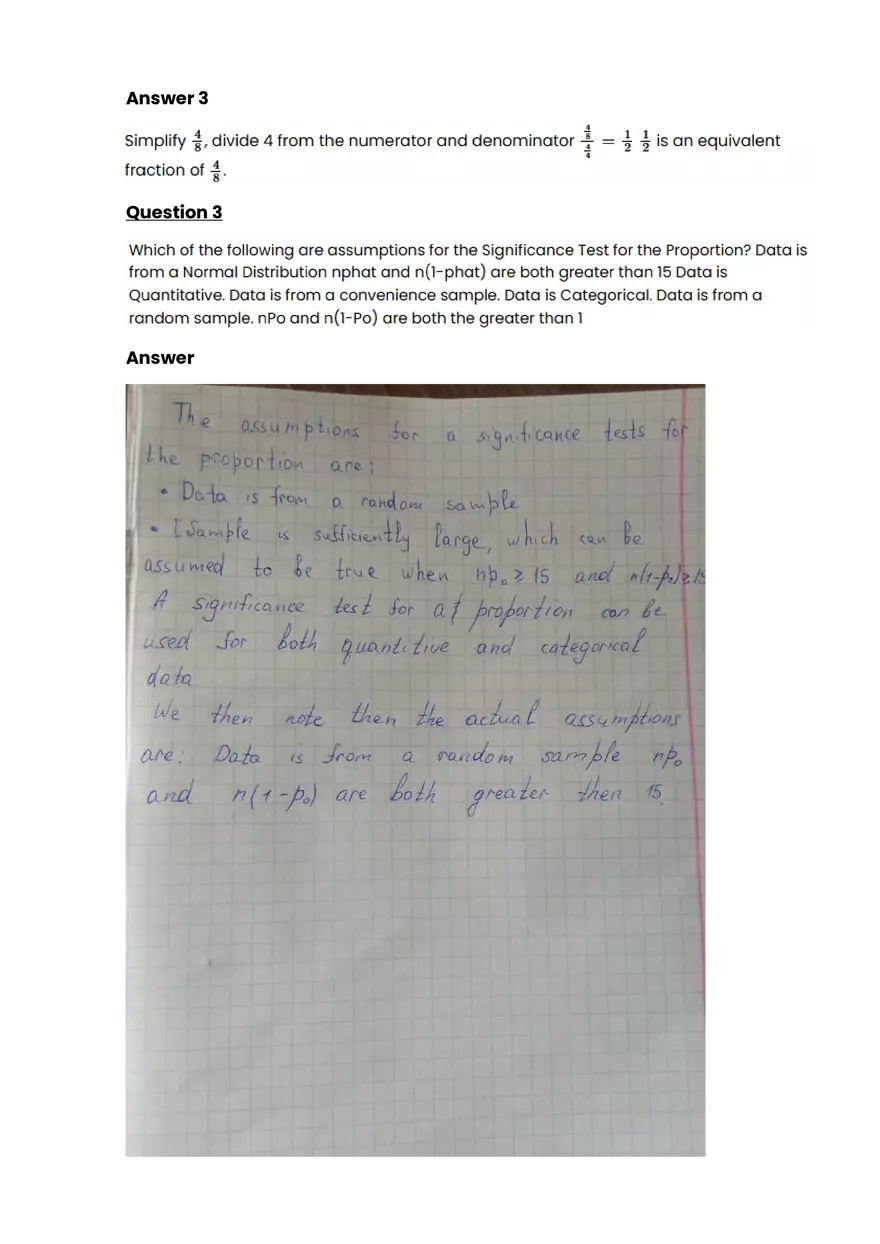 Answer 3
Simplify 4/8, divide 4 from the numerator and denominator 4/8 / 4/4 = 1/2 1/2 is an equivalent
fraction of 4/8.
Question 3
Which of the following are assumptions for the Significance Test for the Proportion? Data is
from a Normal Distribution nphat and n(1-phat) are both greater than 15 Data is
Quantitative. Data is from a convenience sample. Data is Categorical. Data is from a
random sample. nPo and n(1-Po) are both the greater than 1
Answer
The assumptions for a significance tests for
the proportion are:
• Data is from a random sample
• [Sample is sufficiently large, which can be
assumed to be true when np₀ ≥ 15 and n(1-p₀) ≥ 15
A significance test for a proportion can be
used for both quantitive and categorical
data
We then note then the actual assumptions
are: Data is from a random sample np₀
and n(1-p₀) are both greater then 15.